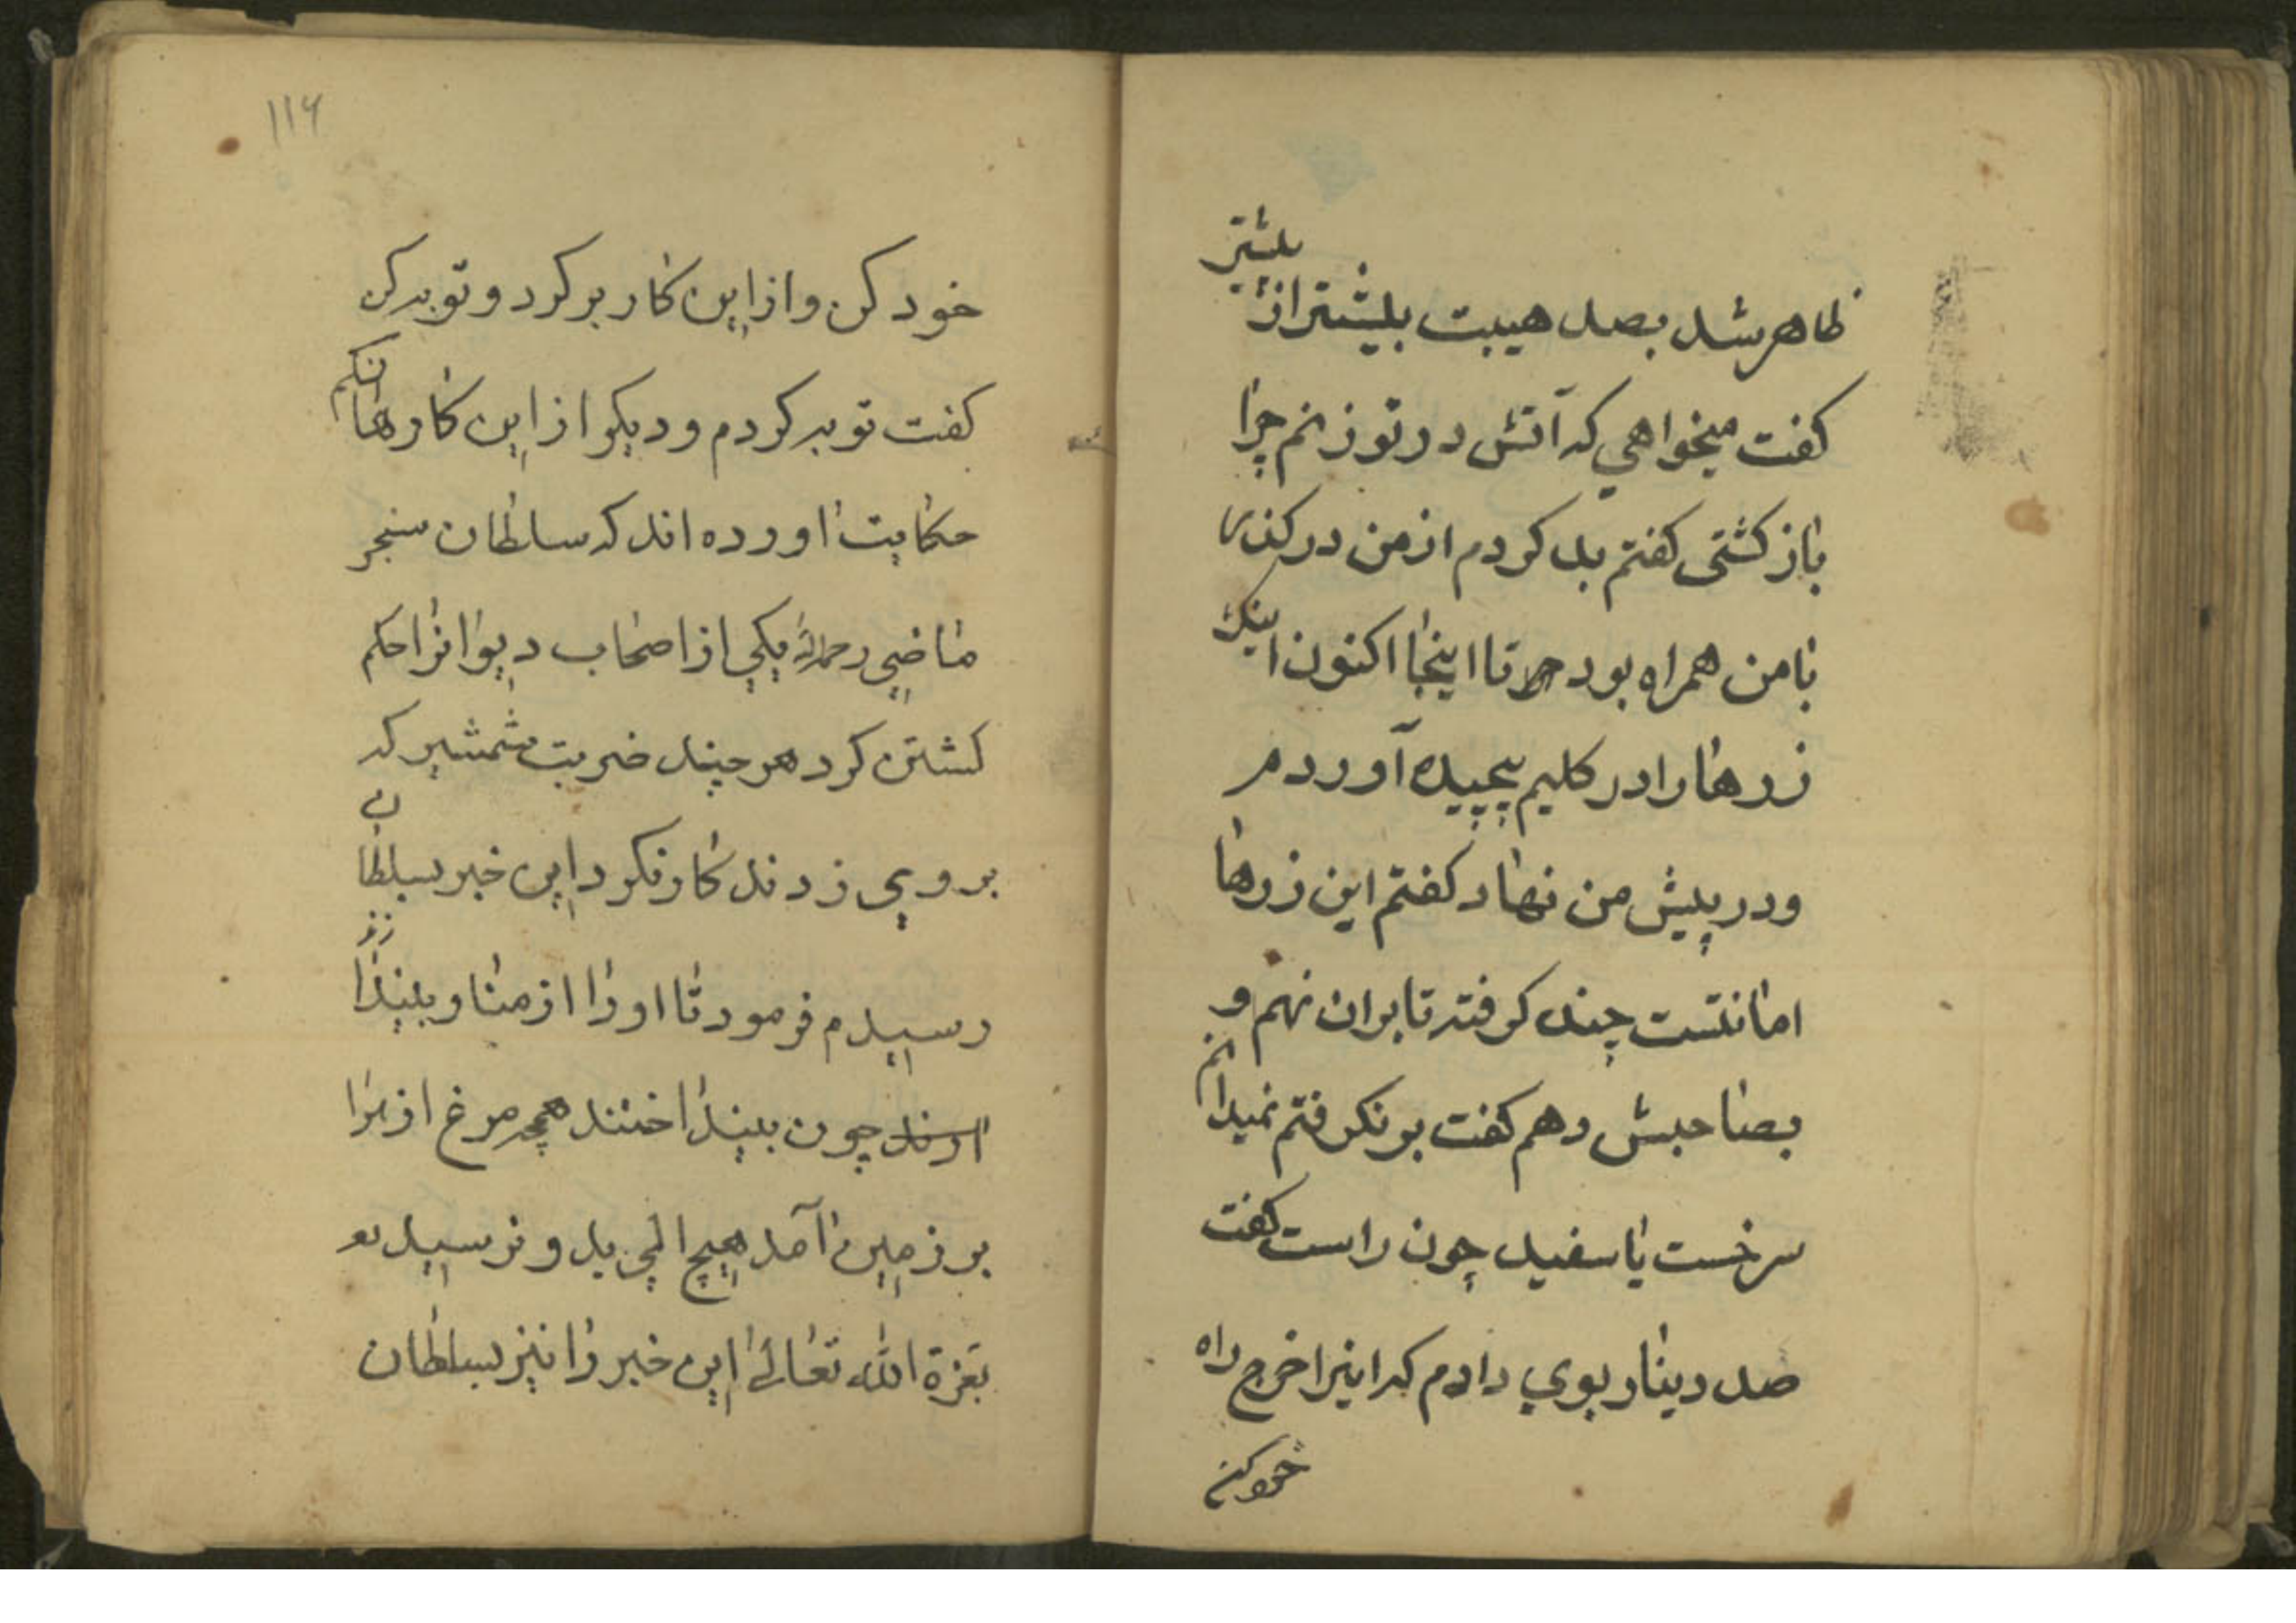 ظاهر شد بصد هیبت بیشتر از پیشتر
کفت میخواهي که آتش در تو زنم چرا
باز کشتی کفتم بد کردم از من درکذر
بامن همراه بود تا اینجا اکنون اینک
زرها را در کلیم پیچیده آورد
ودر پیش من نهاد کفتم این زرها
امانتست چند کرفته تا بران نهم و
بصاحبش دهم کفت بر نکرفتم نمیدانم
سرخست یا سفید چون راست کفت
صد دینار بوي دادم که اینرا خرج راه
خود کن
۱۱۶
خود کن و از این کار برکرد و توبه کن
کفت توبه کردم و دیکر از این کارها نکنم
حکایت اورده اند که سلطان سنجر
ماضي رحمه الله یکي از اصحاب دیوانرا حکم
کشتن کرد هر چند ضربت شمشیر که
بر وي زدند کار نکرد این خبر بسلطان
رسیدم فرمود تا اورا از منار بیندازند
چون بینداختند همچه مرغ از هوا
بر زمین آمد هیچ المي بدو نرسید
بعزة الله تعالی این خبر را نیز بسلطان